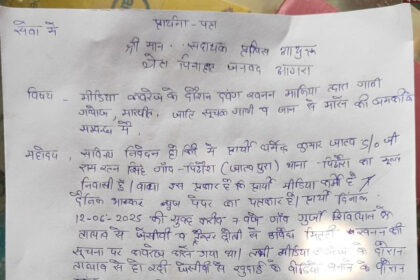 प्रार्थना-पत्र
सेवा में
श्री मान सहायक पुलिस आयुक्त
क्षेत्र पिनाहट जनपद आगरा
विषय - मीडिया कवरेज के दौरान दबंग खनन माफिया द्वारा गाली
गलौज, मारपीट, जाति सूचक गाली व जान से मारने की धमकी के
सम्बन्ध में .
महोदय, सविनय निवेदन है कि मैं प्रार्थी धर्मेन्द्र कुमार जाटव S/o श्री
राम रतन सिंह गाँव - पिढौरा (जाटव पुरा) थाना - पिढौरा का मूल
निवासी हूँ। वाक्या इस प्रकार है कि प्रार्थी मीडिया कर्मी है
दैनिक भास्कर न्यूज पेपर का पत्रकार है। प्रार्थी दिनांक
12-06-2025 की सुबह करीब 7 बजे गाँव गुर्जा शिवलाल के
तालाब से जेसीबी व ट्रैक्टर ट्रॉली से अवैध मिट्टी खनन की
सूचना पर कवरेज करने गया था। तभी मीडिया कवरेज के दौरान
तालाब से हो रही जेसीबी से खुदाई के वीडियो बनाने के दौरान